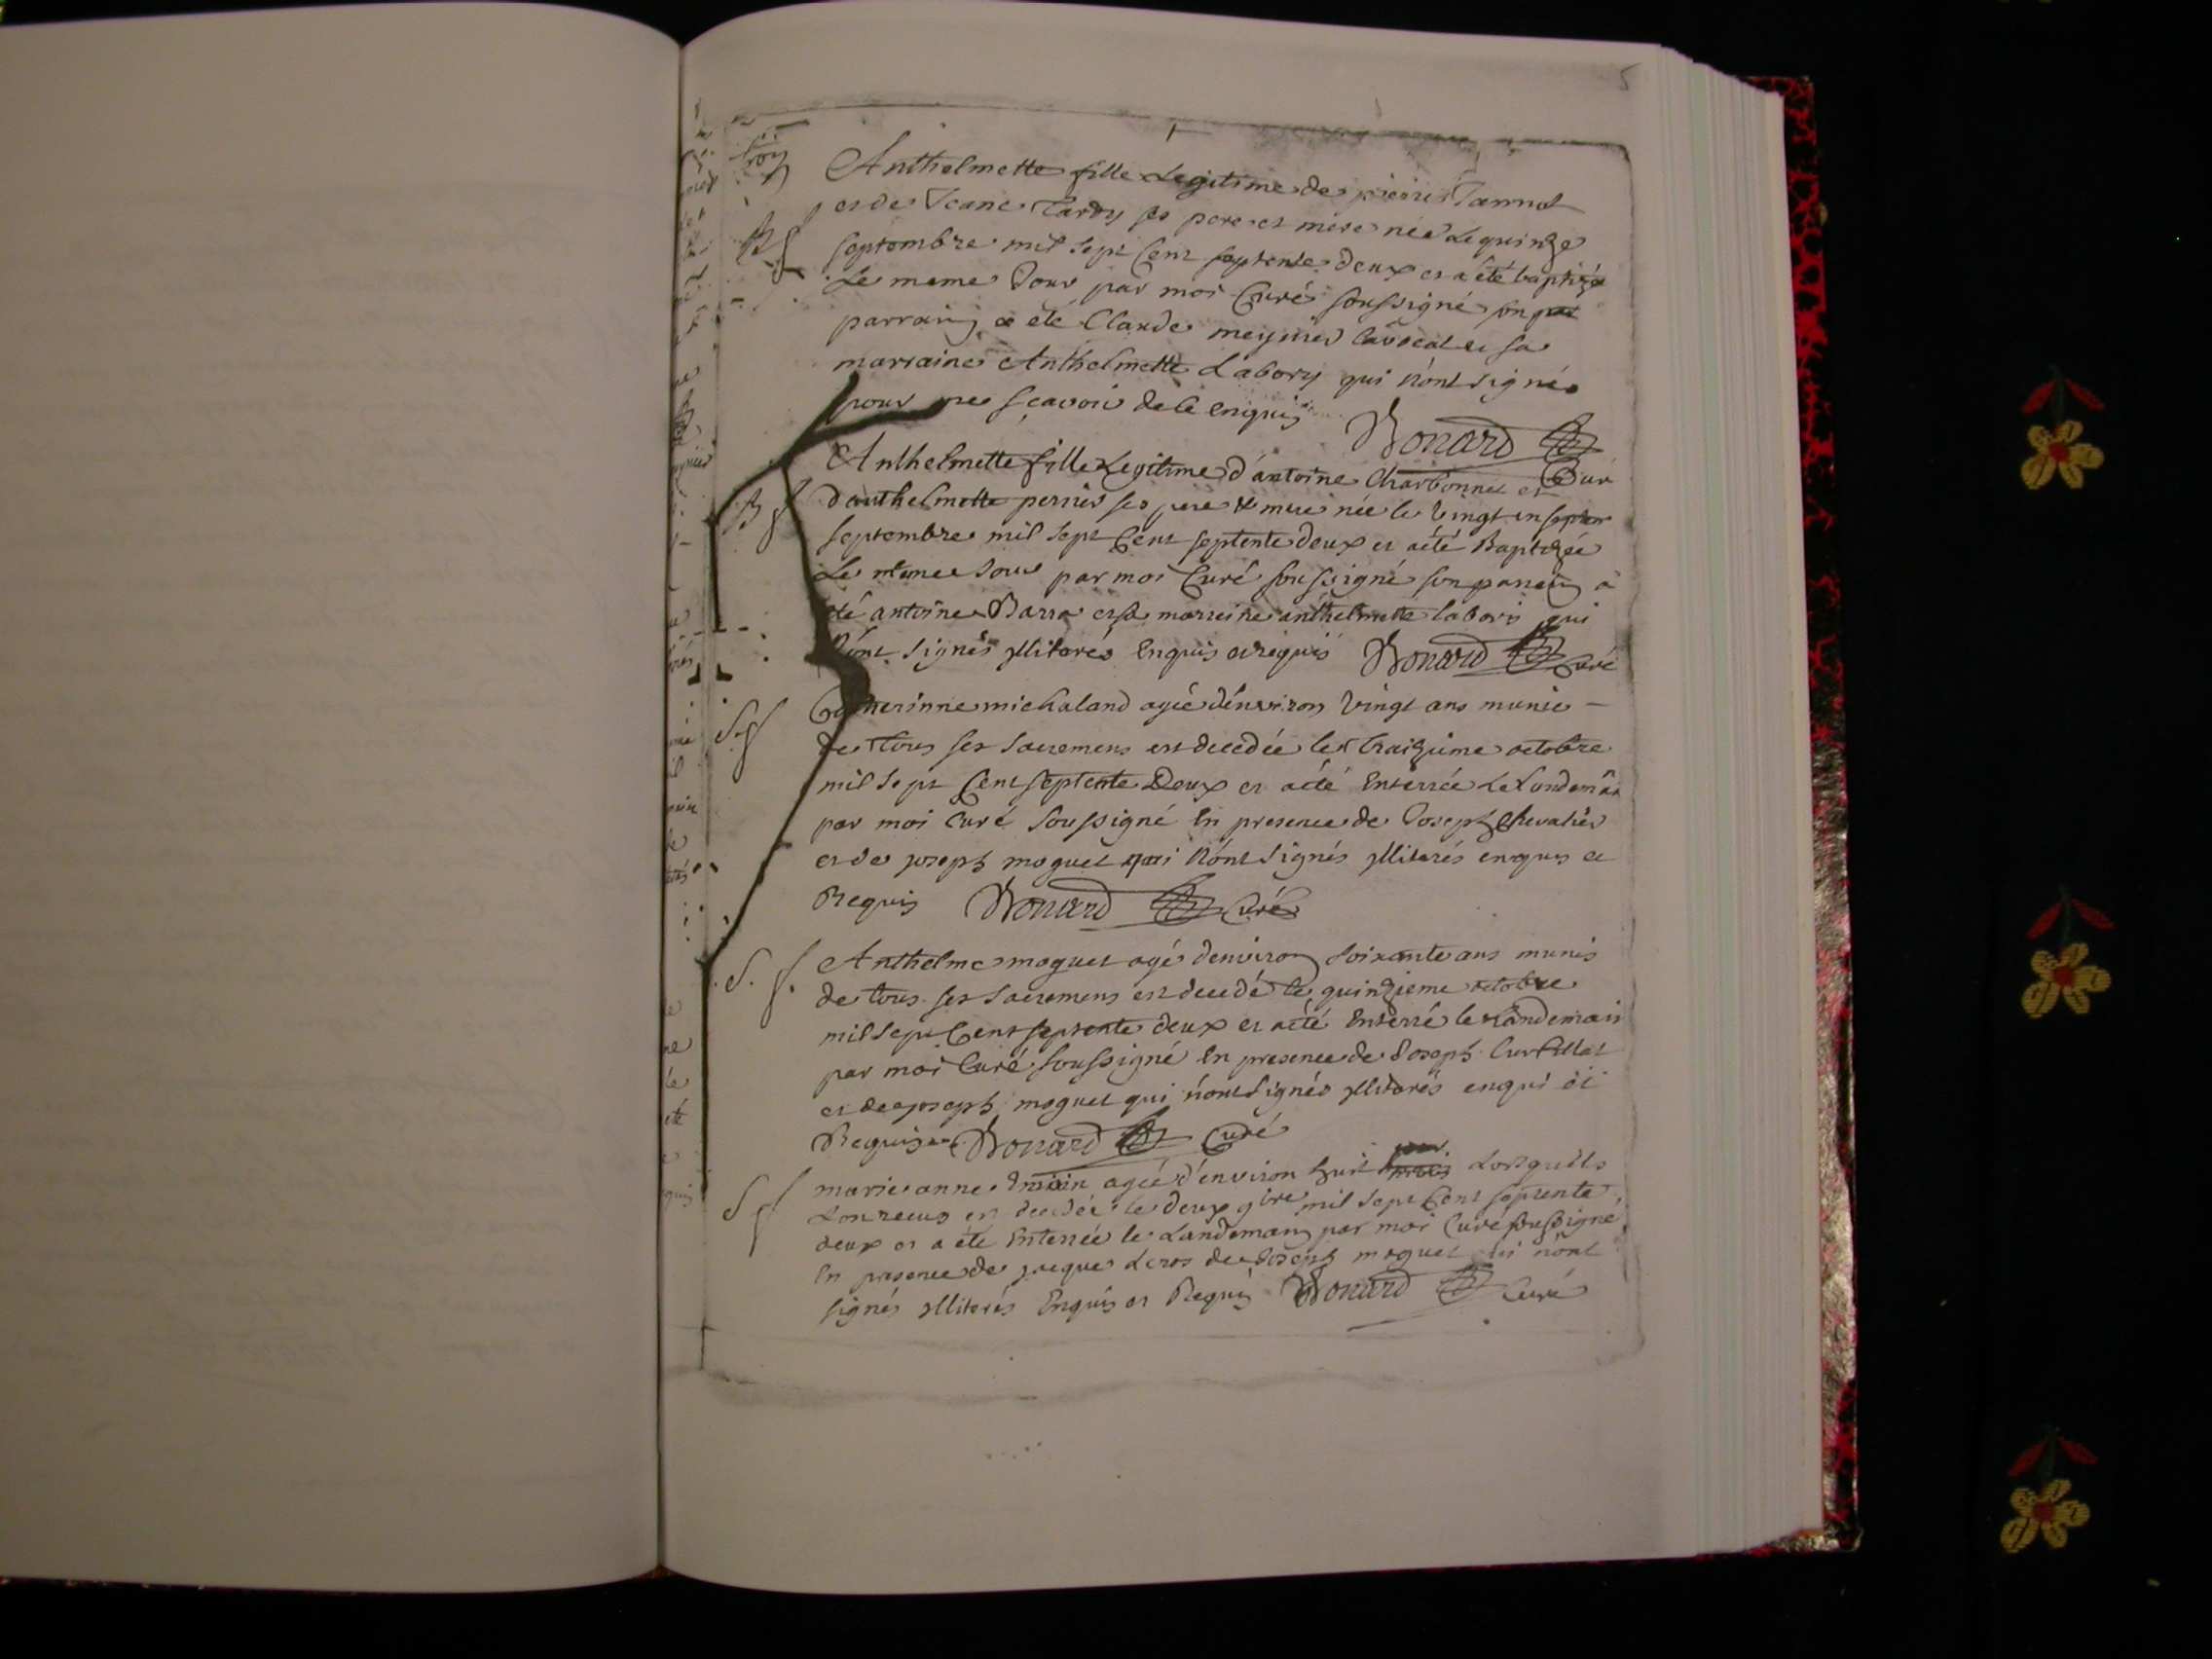 5
B f
Anthelmette fille Legitime de pierre Jannot
et de Jeane Tardy ses pere et mere née Le quinze
septembre mil sept Cent septente deux et a été baptizée
Le meme Jour par moi Curé soussigné son
parrain a été Claude meynier et sa
marraine Anthelmette Labory qui n'ont signés
pour ne sçavoir de ce enquis
Bonard Curé
B f
Anthelmette fille Legitime d'antoine Charbonnet et
d'anthelmette perrier ses pere & mere née le vingt un
septembre mil sept Cent septente deux et a été Baptizée
Le meme Jour par moi Curé soussigné son parrein a
été antoine Barra et sa marreine anthelmette labori qui
n'ont signés yllitarés Enquis et requis Bonard Curé
S. f
Catherinne michaland agée d'environ vingt ans munie
de tous ses sacremens est decedée le traizieme octobre
mil sept Cent septente Deux et a été Enterrée Le Landemain
par moi Curé soussigné En presence de Joseph Chevalier
et de joseph moguet qui n'ont signés yllitarés enquis et
Requis Bonard Curé
S. f.
Anthelme moguet agé d'environ soixante ans munis
de tous ses sacremens est decedé le quinzieme octobre
mil sept Cent septente deux et a été Enterré le Landemain
par moi Curé soussigné En presence de Joseph Curtillat
et de joseph moguet qui n'ont signés yllitarés enqui et
Requis Bonard Curé
S f
marie anne agée d'environ huit Lorguills
decedée le deux 9bre mil sept Cent septente
deux et a été Enterrée le Landemain par moi Curé soussigné
En presence de jaque Leros de Joseph moguet qui n'ont
signés yllitarés Enquis et Requis Bonard Curé